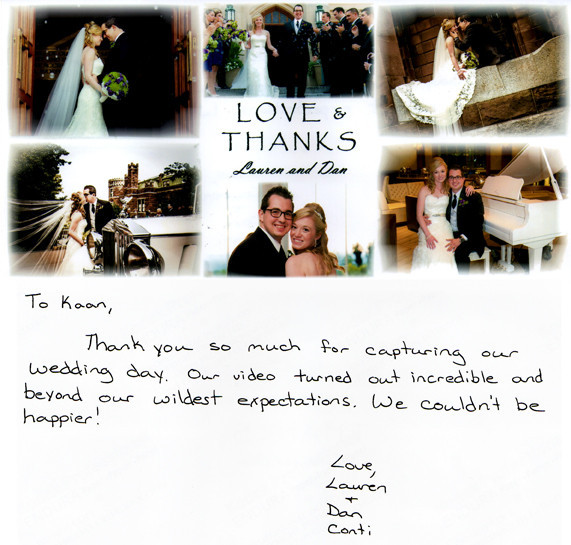 LOVE &
THANKS
Lauren and Dan
To Kaan,
Thank you so much for capturing our
wedding day. Our video turned out incredible and
beyond our wildest expectations. We couldn't be
happier!
Love,
Lauren
+
Dan
Conti